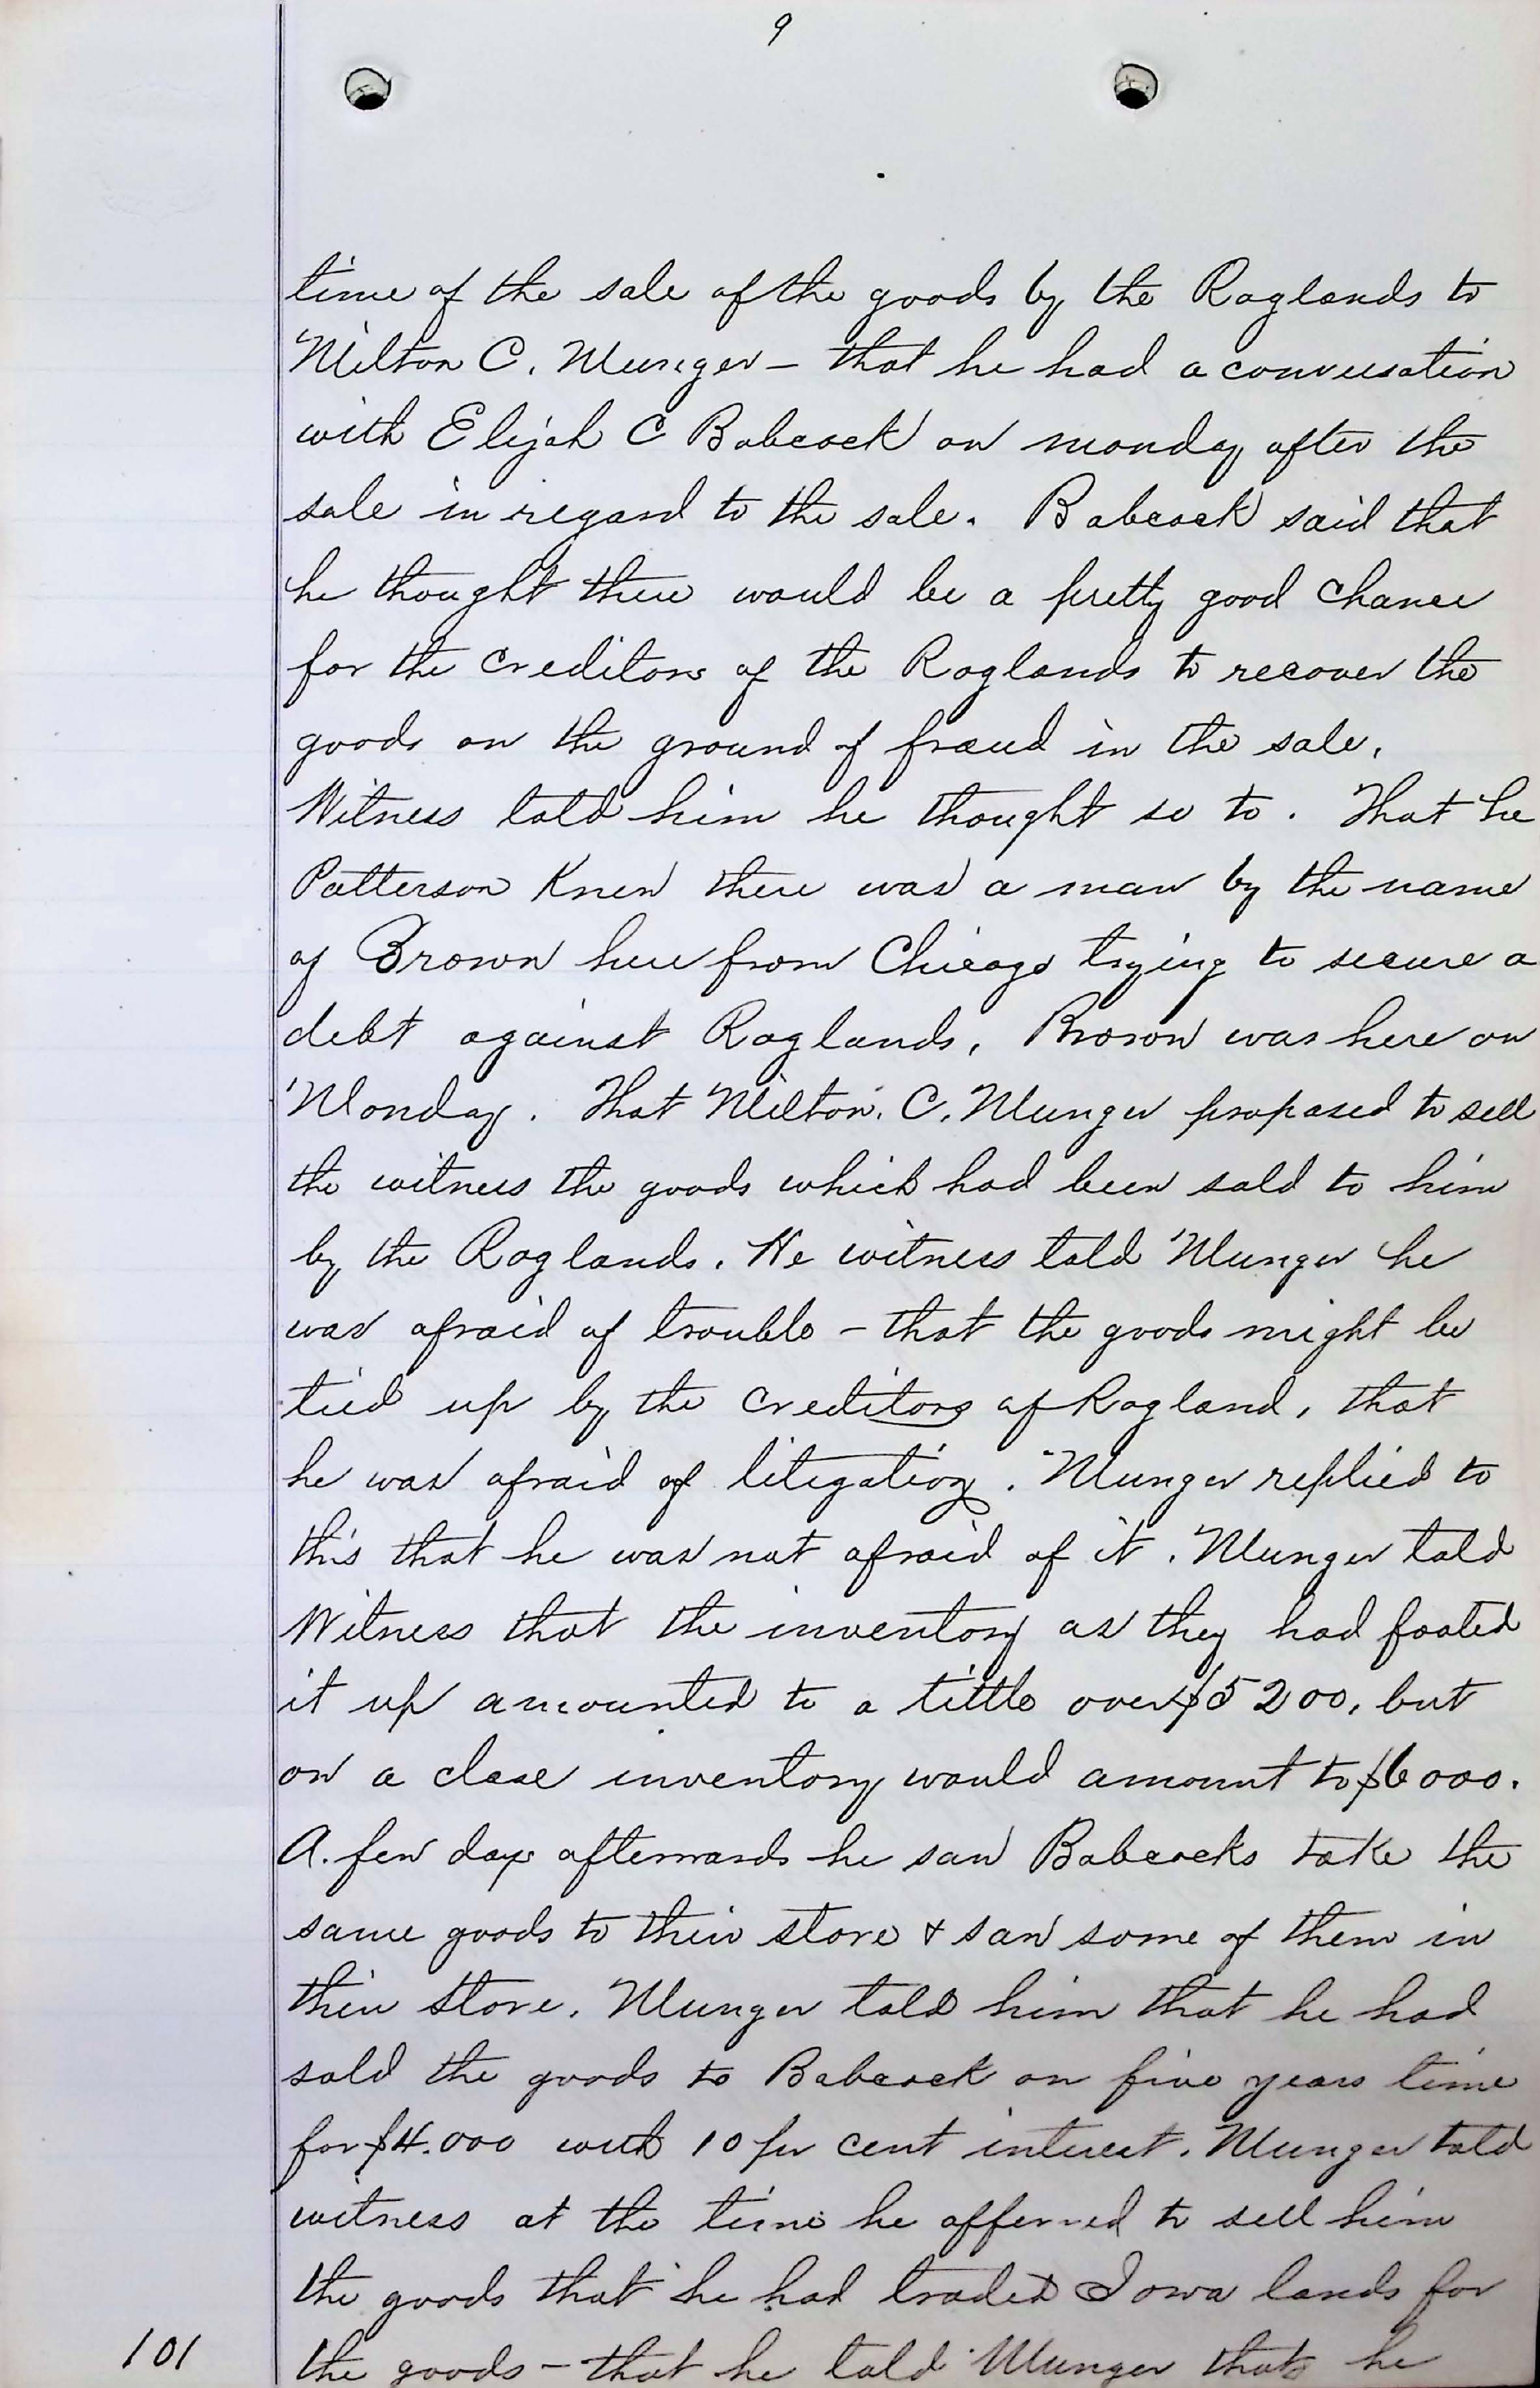 9
time of the sale of the goods by the Raglands to
Milton C. Munger — that he had a conversation
with Elijah C Babcock on monday after the
sale in regard to the sale. Babcock said that
he thought there would be a pretty good chance
for the creditors of the Raglands to recover the
goods on the ground of fraud in the sale.
Witness told him he thought so to. That he
Patterson Knew there was a man by the name
of Brown here from Chicago trying to secure a
debt against Raglands, Brown was here on
Monday. That Milton. C. Munger proposed to sell
the witness the goods which had been sold to him
by the Raglands. He witness told Munger he
was afraid of trouble – that the goods might be
tied up by the creditors of Ragland, that
he was afraid of litigation. Munger replied to
this that he was not afraid of it. Munger told
Witness that the inventory as they had footed
it up amounted to a little over $5200, but
on a close inventory would amount to $6000.
A. few days afterwards he saw Babcocks take the
same goods to their store & saw some of them in
their store. Munger told him that he had
sold the goods to Babcock on five years time
for $4.000 with 10 per cent interest. Munger told
witness at the time he offerred to sell him
the goods that he had traded Iowa lands for
the goods – that he told Munger that he
101